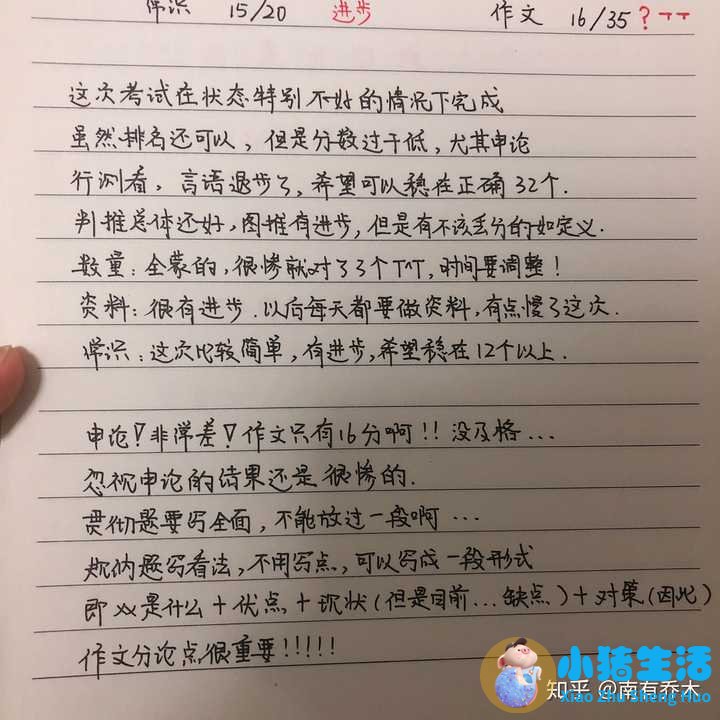 常识 15/20 进步 作文 16/35?TT
这次考试在状态特别不好的情况下完成
虽然排名还可以，但是分数过于低，尤其申论
行测看，言语退步了，希望可以稳在正确32个.
判推总体还好，图推有进步，但是有不该丢分的如定义.
数量：全蒙的，很惨就对了3个T^T，时间要调整！
资料：很有进步.以后每天都要做资料，有点慢了这次.
常识：这次比较简单，有进步，希望稳在12个以上.
申论！非常差！作文只有16分啊!!没及格...
忽视申论的结果还是很惨的.
贯彻题要写全面，不能放过一段啊...
归纳题写看法，不用写点，可以写成一段形式
即xx是什么+优点+现状(但是目前...缺点)+对策(因此)
作文分论点很重要!!!!!
小猪生活
知乎 @南有乔木
Xiao Zhu Sheng Huo